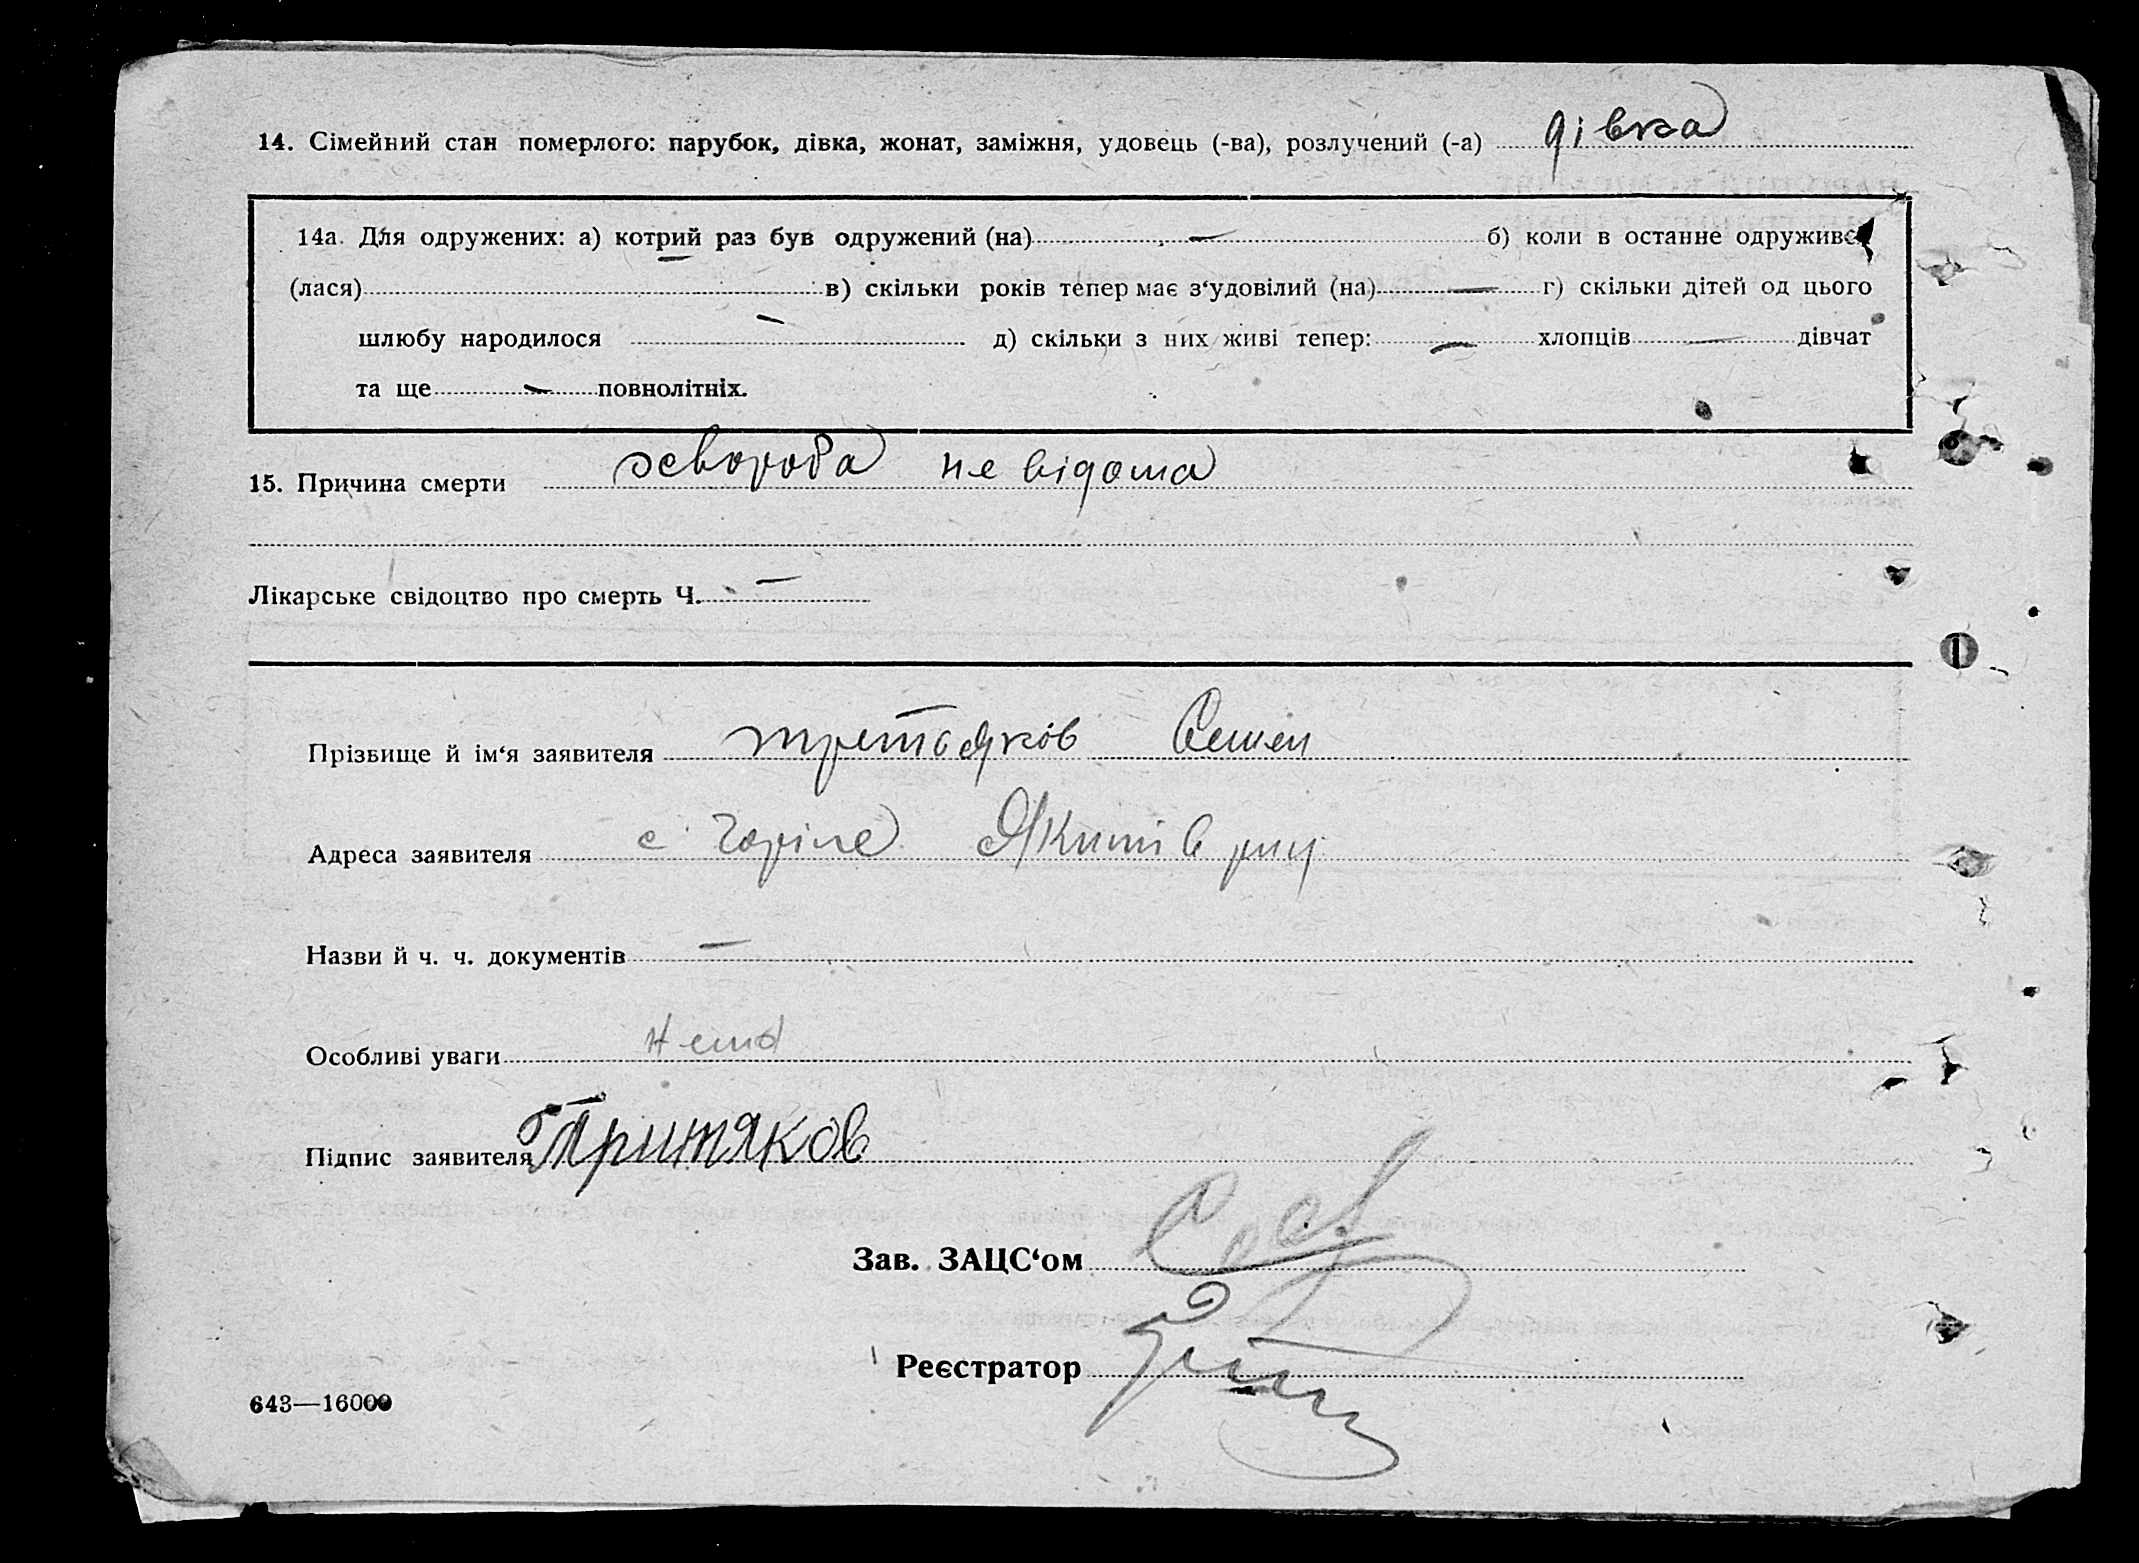 14. Сімейний стан померлого: парубок, дівка, жонат, заміжня, удовець (-ва), розлучений (-а) дівка
14а. Для одружених: а) котрий раз був одружений (на) — б) коли в останнє одружився
(лася) в) скільки років тепер має з‘удовілий (на) — г) скільки дітей од цього
шлюбу народилося — д) скільки з них живі тепер: — хлопців — дівчат
та ще — повнолітніх.
15. Причина смерти хвороба не відома
Лікарське свідоцтво про смерть Ч. —
Прізвище й ім‘я заявителя Третьяков Семен
Адреса заявителя с
Назви й ч. ч. документів —
Особливі уваги Нема
Підпис заявителя Притяков
Зав. ЗАЦС‘ом
Реєстратор
643—16000